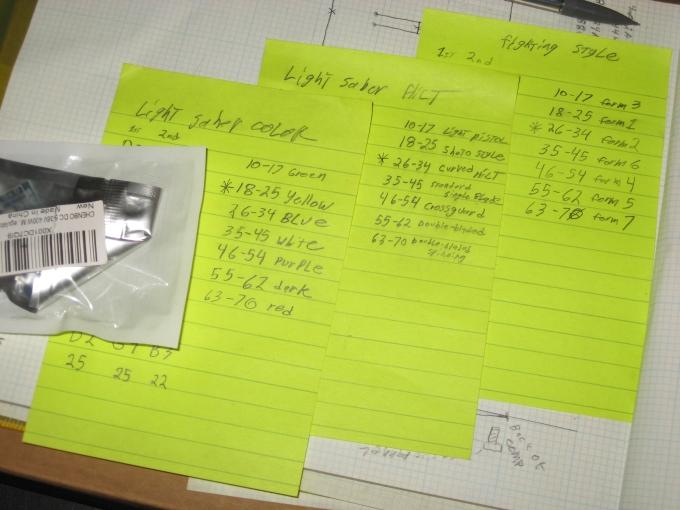 fighting style
1st 2nd
10-17 form 3
18-25 form 1
* 26-34 form 2
35-45 form 6
46-54 form 4
55-62 form 5
63-70 form 7
Light saber HILT
10-17 Light pistol
18-25 Shoto style
* 26-34 curved HILT
35-45 standard
single blade
46-54 crossguard
55-62 double-bladed
63-70 double-bladed
spinning
Light saber COLOR
1st 2nd
10-17 Green
* 18-25 Yellow
26-34 BLue
35-45 white
46-54 purple
55-62 dark
63-70 red
25 25 22
New
Made in China
BACK OK
COMP